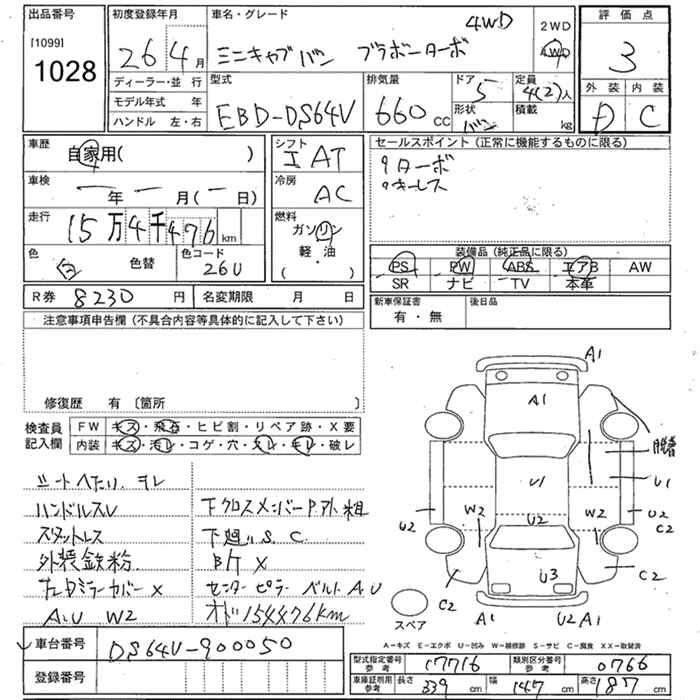 出品番号
[1099]
1028
初度登録年月
26 4月
ディーラー・並 行
モデル年式 年
ハンドル 左・右
車名・グレード
4WD
ミニキャブバン ブラボーターボ
2WD
4WD
型式
EBD-DS64V
排気量
660 CC
ドア
5
形状
バン
定員
4(2)人
積載
kg
評価点
3
外装 内装
D C
車歴
自家用( )
車検
ー年 ー月(ー日)
走行
15万4千476 km
色
白 色替
色コード
26U
シフト
I AT
冷房
AC
燃料
ガソリン
軽・油
( )
セールスポイント (正常に機能するものに限る)
ターボ
キーレス
装備品 (純正品に限る)
PS PW ABS エアB AW
SR ナビ TV 本革
R券 8230 円
名変期限 月 日
新車保証書
有・無
後日品
注意事項申告欄 (不具合内容等具体的に記入して下さい)
修復歴 有 〔箇所 〕
検査員
記入欄
FW キズ・飛石・ヒビ割・リペア跡・X要
内装 キズ・汚レ・コゲ・穴・スレ・キレ・破レ
シートへたり、ヨレ
ハンドルスレ
スタットレス
外装鉄粉
左ドアミラーカバーX
A.U W2
下クロスメンバーP外粗
下廻りS.C
BケX
センターピラー ベルトA.U
オド154476km
A1
A1
脱着
U1
U1
W2
U2
W2
U2
U2
C2
U3
C2
C2
A1
U2 A1
スペア
車台番号 DS64V-900050
登録番号
A-キズ E-エクボ U-凹み W-補修跡 S-サビ C-腐食 XX-取替済
型式指定番号
参考
17716
類別区分番号
参考
0766
車庫証明用
参考
長さ 339 cm 幅 147 cm 高さ 187 cm